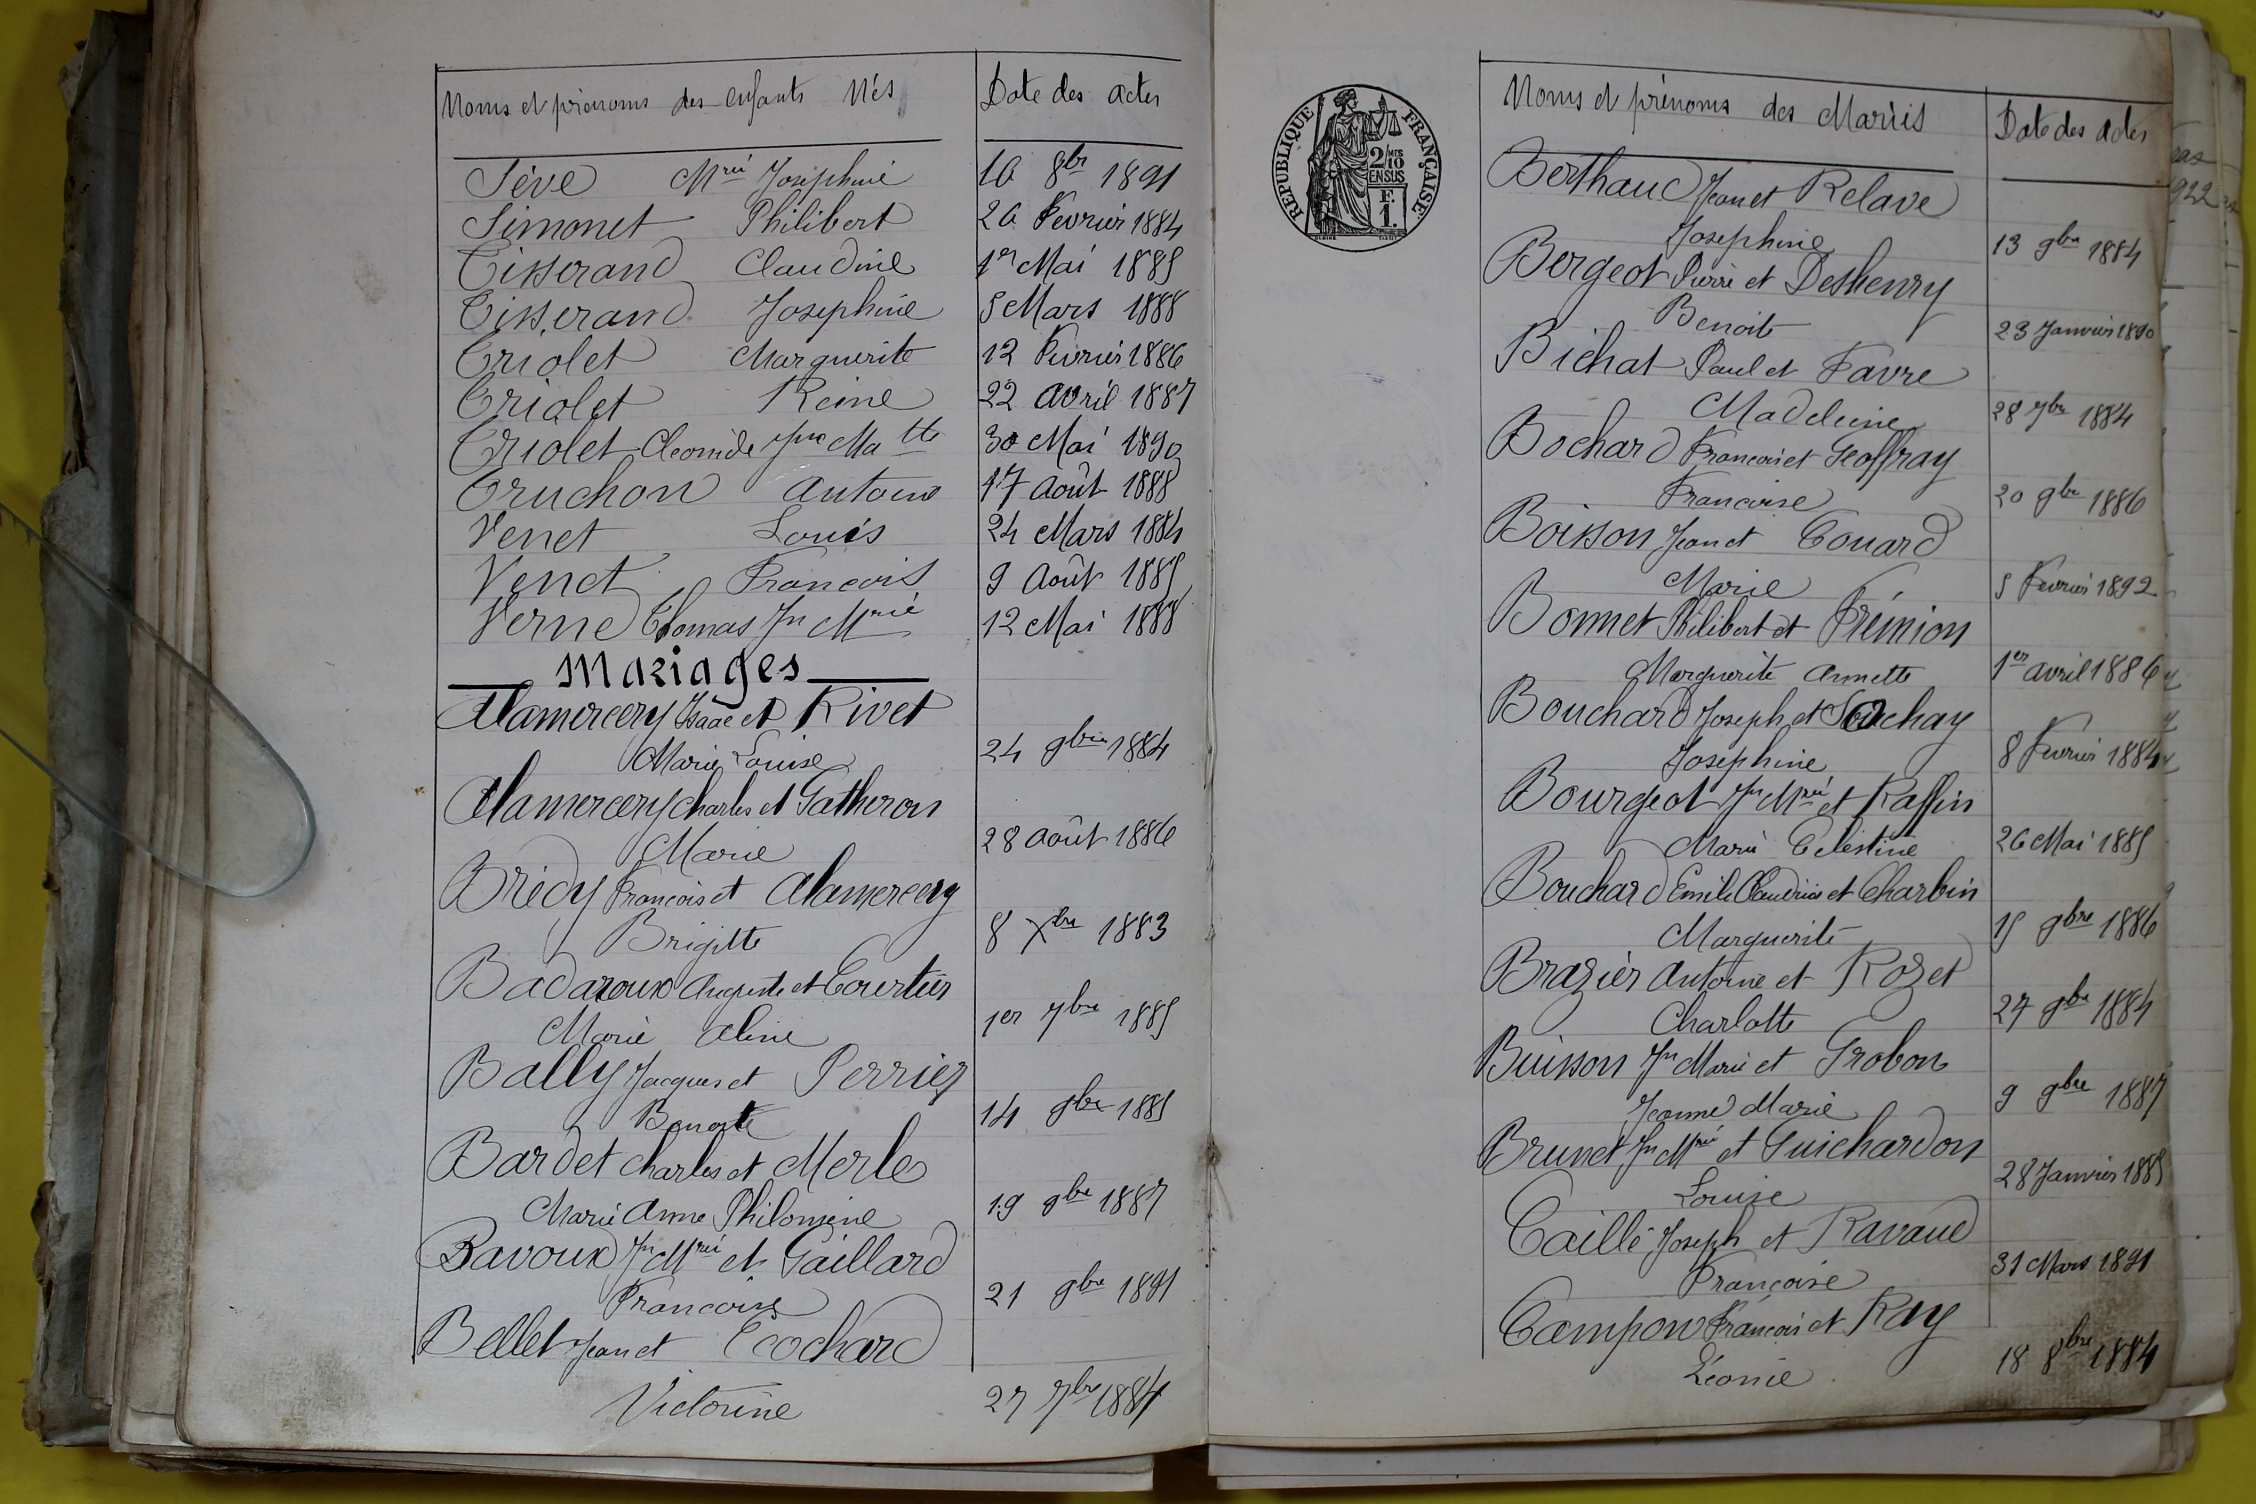 Noms et prénoms des enfants Nés Date des actes
Sève Mrie Joséphine 10 8bre 1891
Simonet Philibert 20 Février 1884
Tisserand Claudine 1er Mai 1885
Tisserand Joséphine 5 Mars 1888
Triolet Marguerite 12 Février 1886
Triolet Reine 22 avril 1887
Triolet Cleonide Jne Ma tte 30 Mai 1890
Truchon Antoine 17 Août 1888
Venet Louis 24 Mars 1884
Venet François 9 Août 1885
Verne Thomas Jn Mrie 12 Mai 1888
Mariages
Alamercery Isaac et Rivet
Marie Louise 24 9bre 1884
Alamercery Charles et Gatheron
Marie 28 Août 1886
Brédy François et Alamercery
Brigitte 8 Xbre 1883
Badaroux Auguste et Courtier
Marie Aline 1er 7bre 1885
Bally Jacques et Perrier
Benoite 14 9bre 1885
Bardet Charles et Merle
Marie Anne Philomène 19 9bre 1887
Bavoux Jn Mrie et Gaillard
Françoise 21 9bre 1891
Bellet Jean et Ecochard
Victorine 27 7bre 1884
REPUBLIQUE FRANÇAISE
2/10 MES
EN SUS
F.
1.
Noms et prénoms des Mariés Date des actes
Berthaud Jean et Relave
Joséphine 13 9bre 1884
Bergeot Pierre et Deshenry
Benoite 23 Janvier 1890
Bichat Paul et Favre
Madeleine 28 7bre 1884
Bochard François et Geoffray
Françoise 20 9bre 1886
Boisson Jean et Couard
Marie 5 Février 1892
Bonnet Philibert et Frémion
Marguerite Annette 1er avril 1886
Bouchard Joseph et Souchay
Joséphine 8 Février 1884
Bourgeot Jn Mrie et Raffin
Marie Celestine 26 Mai 1885
Bouchard Emile Claudius et Charbin
Marguerite 15 9bre 1886
Brazier Antoine et Rozet
Charlotte 27 9bre 1884
Buisson Jn Marie et Grobon
Jeanne Marie 9 9bre 1887
Brunet Jn Mrie et Guichardon
Louise 28 Janvier 1885
Caille Joseph et Ravaud
Françoise 31 Mars 1891
Campon François et Ray
Léonie 18 8bre 1884